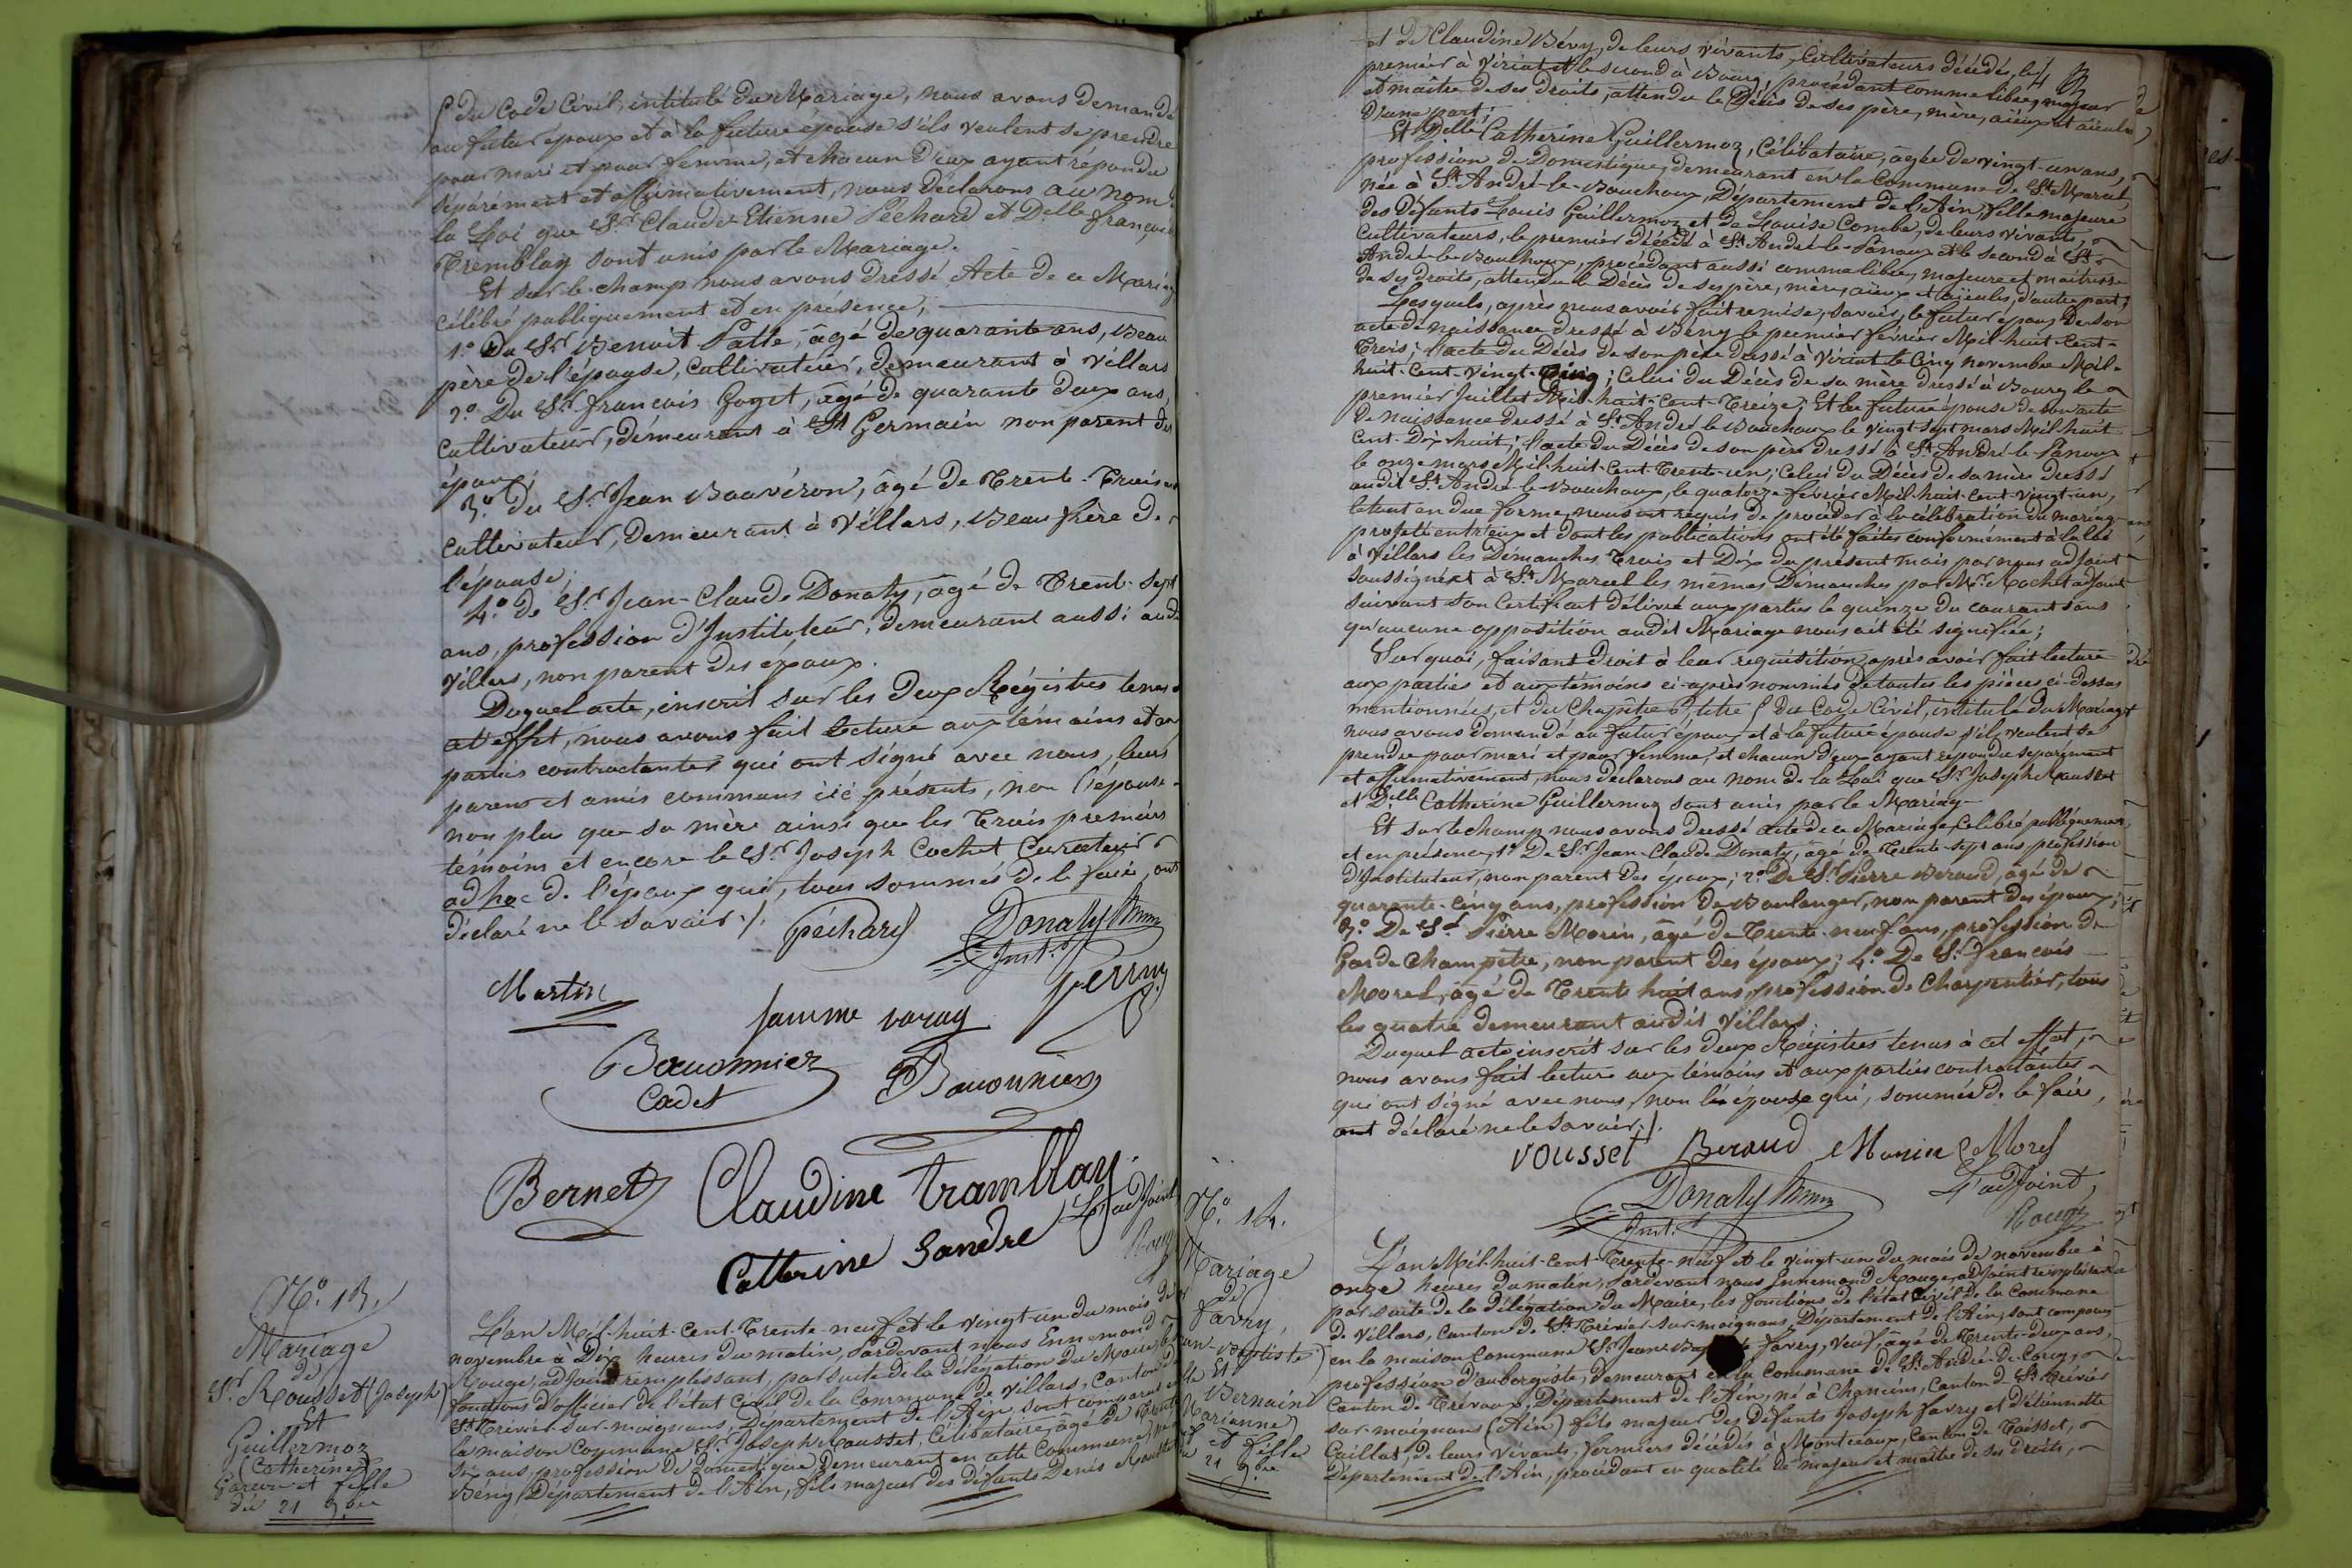 5 du Code Civil, intitulé du Mariage, nous avons demandé
au futur époux et à la future épouse s'ils veulent se prendre
pour mari et pour femme, et chacun d'eux ayant répondu
séparément et affirmativement, nous déclarons au nom de
la Loi que Sr. Claude Etienne Péchard et Delle françoise
Tremblay sont unis par le Mariage.
Et sur-le-champ nous avons dressé Acte de ce Mariage
célébré publiquement et en présence,
1.o Du Sr. Benoit Patte, âgé de quarante ans, Beau
père de l'épouse, Cultivateur, demeurant à Villars
2.o Du Sr. françois Goget, âgé de quarante deux ans,
Cultivateur, demeurant à St Germain non parent des
époux;
3.o du Sr. Jean Bouvéron, âgé de Trente-Trois ans
cultivateur, demeurant à Villars, Beau frère de
l'épouse;
4.o de Sr. Jean-Claude Donaty, âgé de Trente-Sept
ans, profession d'Instituteur, demeurant aussi audit
Villars, non parent des époux.
Duquel acte, inscrit sur les deux Régistres tenus à
cet effet, nous avons fait lecture aux témoins et aux
parties contractantes qui ont signé avec nous, leurs
parens et amis communs ici présents, non l'épouse
non plus que sa mère ainsi que les Trois premiers
témoins et encore le Sr. Joseph Cochet Curateur
ad hoc de l'époux qui, tous sommés de le faire, ont
déclaré ne le savoir ./.
péchard
Donaty
Inst.r
Martin
perrin
famme varay
Bouvonnier
Cadet
Bauonnier
Bernet
Claudine tramblay
L'adjoint
Catterine Sandre
Rouge
N.o 13.
Mariage
de
Sr. Rousset (Joseph)
Et
Guillermoz
(Catherine)
Garçon et fille
du 21 9.bre
L'an Mil-huit-Cent-Trente-neuf et le vingt-un du mois de
novembre à Dix heures du matin, Pardevant nous Ennemond
Rouge, adjoint remplissant, par suite de la délégation du Maire, les
fonctions d'officier de l'état Civil de la Commune de Villars, Canton de
St. Trivier-sur-moignans, Département de l'Ain, sont comparus en
la maison Commune Sr. Joseph Rousset, Célibataire, âgé de Trente
Six ans, profession de Domestique demeurant en cette Commune, né à
Bény, Département de l'Ain, fils majeur des défunts Denis Rousset
et de Claudine Bévy, de leurs vivants, Cultivateurs décédés, le
premier à Viriat et le second à Bourg, procédant comme libre, majeur
et maître de ses droits, attendu le Décès de ses père, mère, aïeux et aïeules,
d'une part;
Et Delle Catherine Guillermoz, Célibataire, âgée de vingt-un ans,
profession de Domestique, demeurant en la Commune de St Marcel,
née à St. André-le-Bouchoux, Département de l'Ain, fille majeure
des défunts Louis Guillermoz et de Louise Combe, de leurs vivants,
Cultivateurs, le premier décédé à St. André-le-Panoux et le second à St.
André-le-Bouchoux, procédant aussi comme libre, majeure et maîtresse
de ses droits, attendu le Décès de ses père, mère, aïeux et aïeules, d'autre part;
Lesquels, après nous avoir fait remise, savoir, le futur époux de son
acte de naissance dressé à Bény le premier février Mil-huit-Cent-
Trois; l'acte du Décès de son père dressé à Viriat le Cinq novembre Mil-
huit-Cent-Vingt-Cinq; Celui du Décès de sa mère dressé à Bourg le
premier Juillet Mil-huit-Cent-Treize; Et la future épouse de son acte
de naissance dressé à St. André le Bouchoux le vingt sept mars Mil-huit
Cent-Dix-huit; l'acte du Décès de son père dressé à St. André-le-Panoux
le onze mars Mil-huit-Cent-Trente-un; Celui du Décès de sa mère dressé
audit St. André-le-Bouchoux, le quatorze février Mil-huit-Cent-Vingt-un,
le tout en due forme, nous ont requis de procéder à la célébration du mariage
projeté entr'eux et dont les publications ont été faites conformément à la loi
à Villars les Dimanches Trois et Dix du présent mois par nous adjoint
soussigné et à St. Marcel les mêmes Dimanches par Mr. Rochet adjoint
suivant son Certificat délivré aux parties le quinze du courant sans
qu'aucune opposition audit Mariage nous ait été signifiée;
Sur quoi, faisant droit à leur réquisition, après avoir fait lecture
aux parties et aux témoins ci-après nommés de toutes les pièces ci-dessus
mentionnées, et du Chapitre 6 titre 5 du Code Civil, intitulé du Mariage
nous avons demandé au futur époux et à la future épouse s'ils veulent se
prendre pour mari et pour femme, et chacun d'eux ayant répondu séparément
et affirmativement, nous déclarons au nom de la Loi que Sr. Joseph Rousset
et Delle Catherine Guillermoz sont unis par le Mariage
Et sur le champ nous avons dressé acte de ce Mariage, Célébré publiquement
et en présence, 1.o De Sr. Jean-Claude Donaty, âgé de Trente-sept ans, profession
d'Instituteur, non parent des époux; 2.o De Sr. Pierre Beraud, âgé de
quarante-cinq ans, profession de Boulanger, non parent des époux;
3.o De Sr. Pierre Morin, âgé de Trente-neuf ans, profession de
Garde Champêtre, non parent des époux; 4.o De Sr. françois
Morel, âgé de Trente huit ans, profession de Charpentier, tous
les quatre demeurant audit Villars.
Duquel acte inscrit sur les deux Régistres tenus à cet effet,
nous avons fait lecture aux témoins et aux parties contractantes
qui ont signé avec nous, non l'épouse qui, sommés de le faire,
ont déclaré ne le savoir ./.
rousset Beraud Morin Morel
Donaty
Inst.r
L'adjoint,
Rouge
N.o 14.
Mariage
de
favry,
Jean-Baptiste)
Et
Bernain
Marianne)
et fille
21 9.bre
L'an Mil-huit-Cent-Trente-neuf et le vingt-un du mois de novembre à
onze heures du matin, Pardevant nous Ennemond Rouge, adjoint remplissant
par suite de la délégation du Maire, les fonctions de l'état Civil de la Commune
de Villars, Canton de St. Trivier-sur-moignans, Département de l'Ain, sont comparus
en la maison Commune Sr. Jean-Baptiste favry, Veuf, âgé de Trente-deux ans,
profession d'aubergiste, demeurant en la Commune de St. André-De-Corcy,
Canton de Trévoux, Département de l'Ain, né à Chaneins, Canton de St. Trivier
sur-moignans (Ain) fils majeur des défunts Joseph favry et d'étiennette
Caillat, de leurs vivants, fermiers décédés à Montceaux, Canton de Toissei,
Département de l'Ain, procédant en qualité de majeur et maître de ses droits,